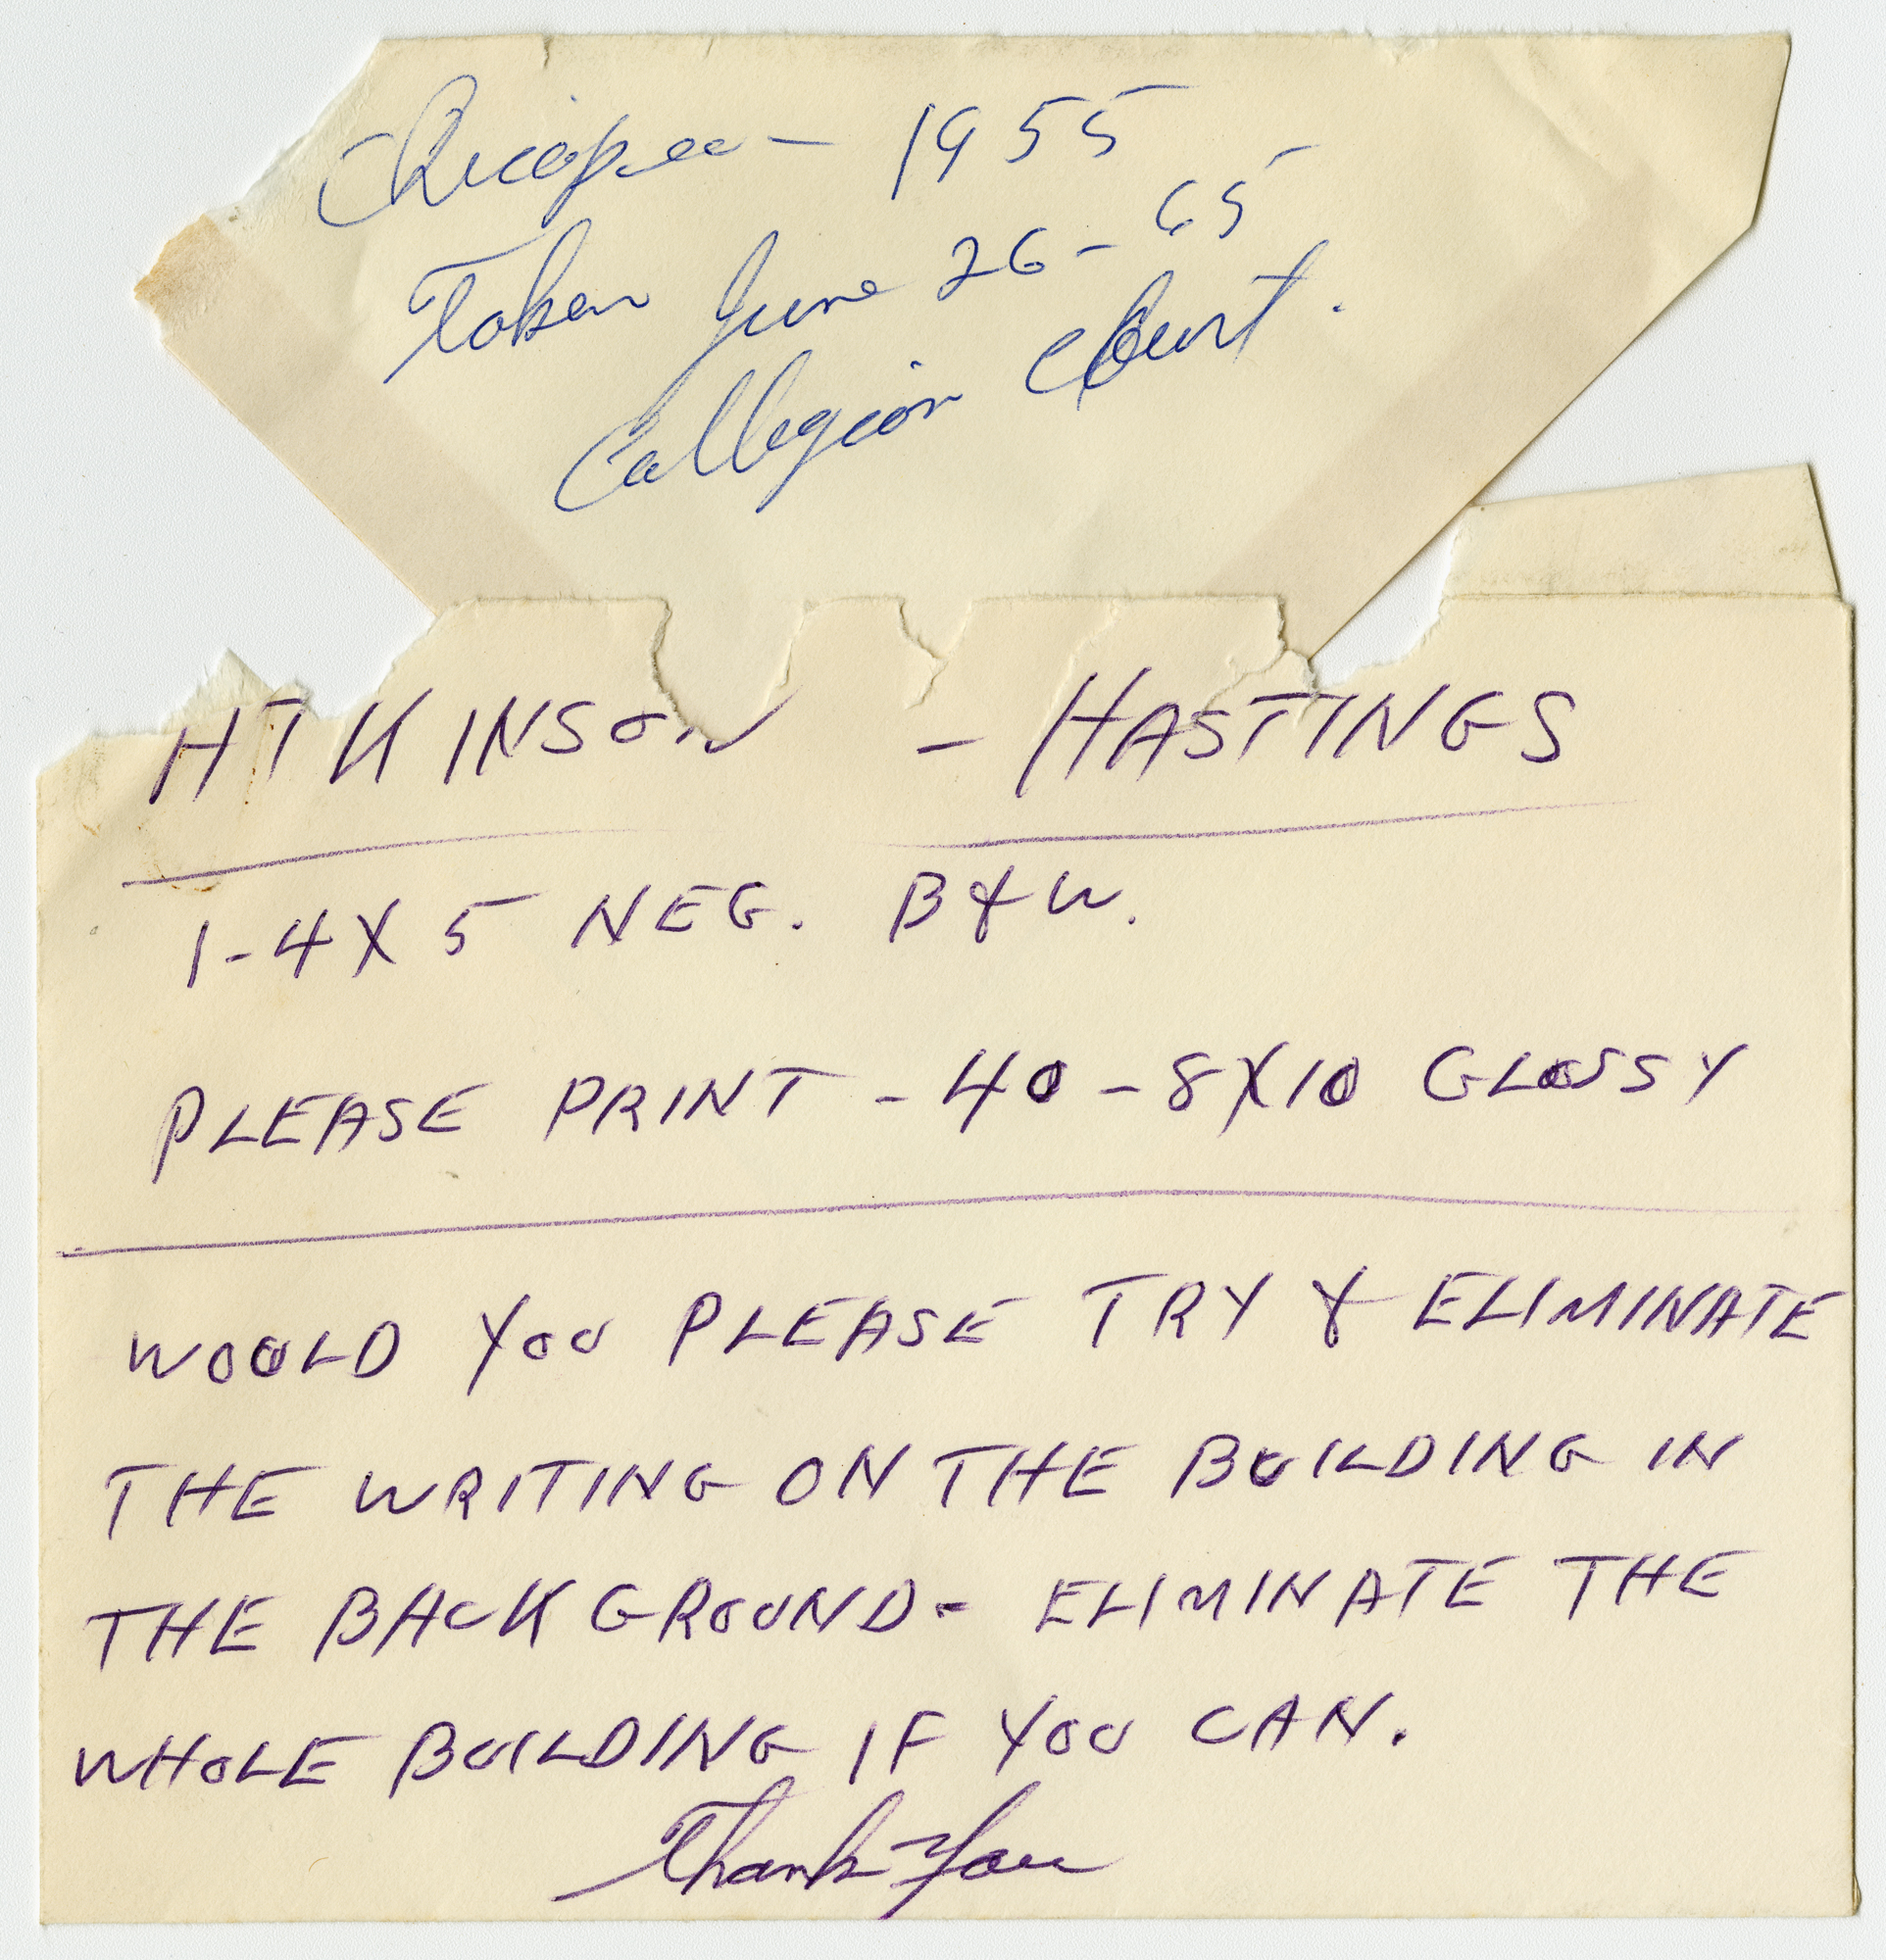 Chicopee - 1955
Taken June 26 - 65
Callegion Court.
ATKINSON - HASTINGS
1-4X5 NEG. B&W.
PLEASE PRINT - 40 - 8X10 GLOSSY
WOULD YOU PLEASE TRY & ELIMINATE
THE WRITING ON THE BUILDING IN
THE BACKGROUND - ELIMINATE THE
WHOLE BUILDING IF YOU CAN.
Thank You